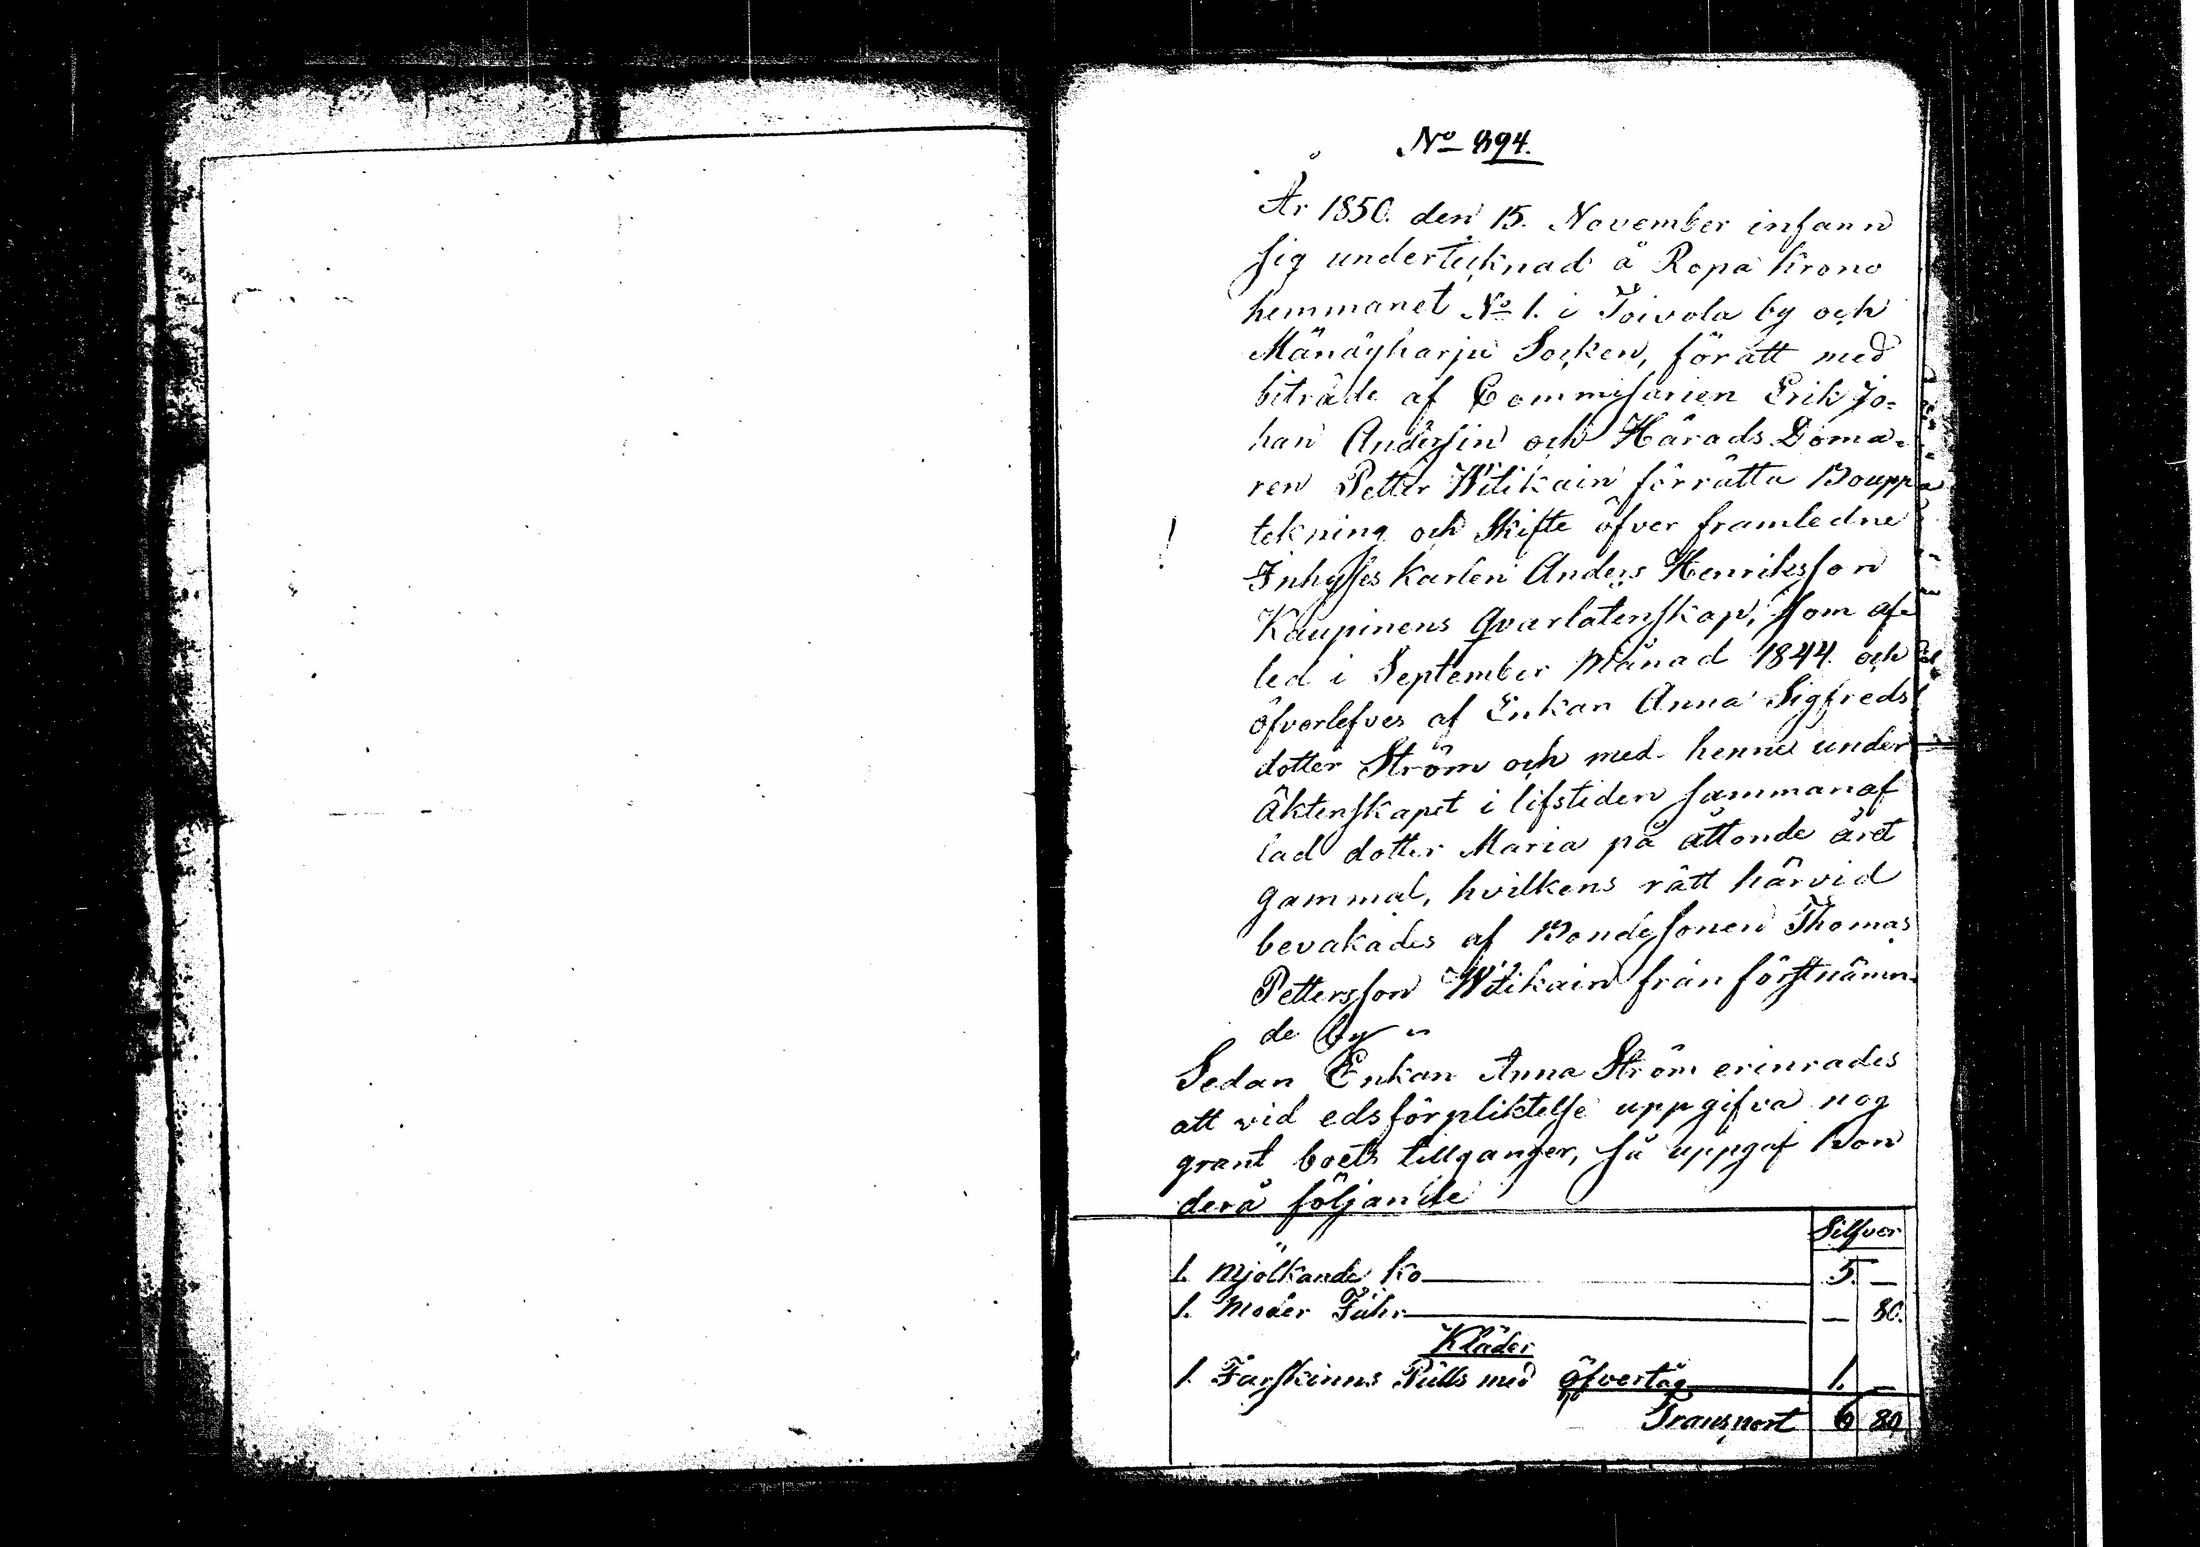 No 894.
År 1850. den 15. November infann
sig undertecknad å Ropa Krono
hemmanet No 1. i Toivola by och
Mändyharju Socken, för att med
biträde af Commissarien Erik Jo=
han Andersin och Härads Doma=
ren Petter Witikain förrättaBoupp
tekning och Skifte öfver framledne
Inhysses Karlen Anders Henriksson
Kaupinens qvarlatenskap, som af=
led i September Månad 1844. och
öfverlefves af Enkan Anna Sigfreds
dotter Ström och med henne under
Äktenskapet i lifstiden sammanaf
lad dotter Maria på åttonde året
gammal, hvilkens rätt härvid
bevakades af Bondesonen Thomas
Pettersson Witikain från förstnämn=
de by
Sedan Enkan Anna Ström erinrades
att vid edsförpliktelse uppgifva nog
grant boets tillgangar, så uppgaf hon
derå följande
Silfver
1. Mjölkande Ko 5. —
1. Moder Fåhr — 80.
Kläder
1. Farskinns Pälls med öfvertåg 1. —
Transport 6 80